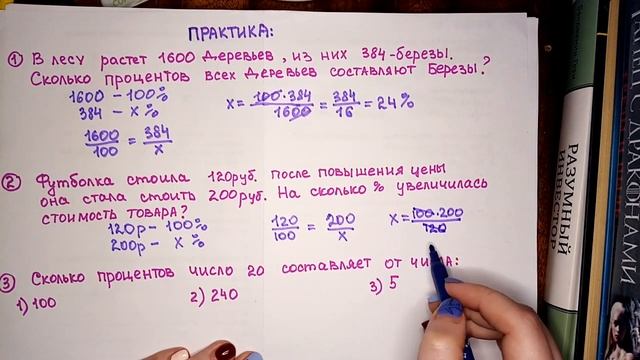 ПРАКТИКА:
① В лесу растет 1600 деревьев, из них 384-березы.
Сколько процентов всех деревьев составляют березы?
1600 – 100%
384 – x%
1600/100 = 384/x
x = 100·384/1600 = 384/16 = 24%
② Футболка стоила 120руб. после повышения цены
она стала стоить 200руб. На сколько % увеличилась
стоимость товара?
120р – 100%
200р – x%
120/100 = 200/x
x = 100·200/120
③ Сколько процентов число 20 составляет от числа:
1) 100
2) 240
3) 5
РАЗУМНЫЙ
ИНВЕСТОР
ДРАКОНАМИ